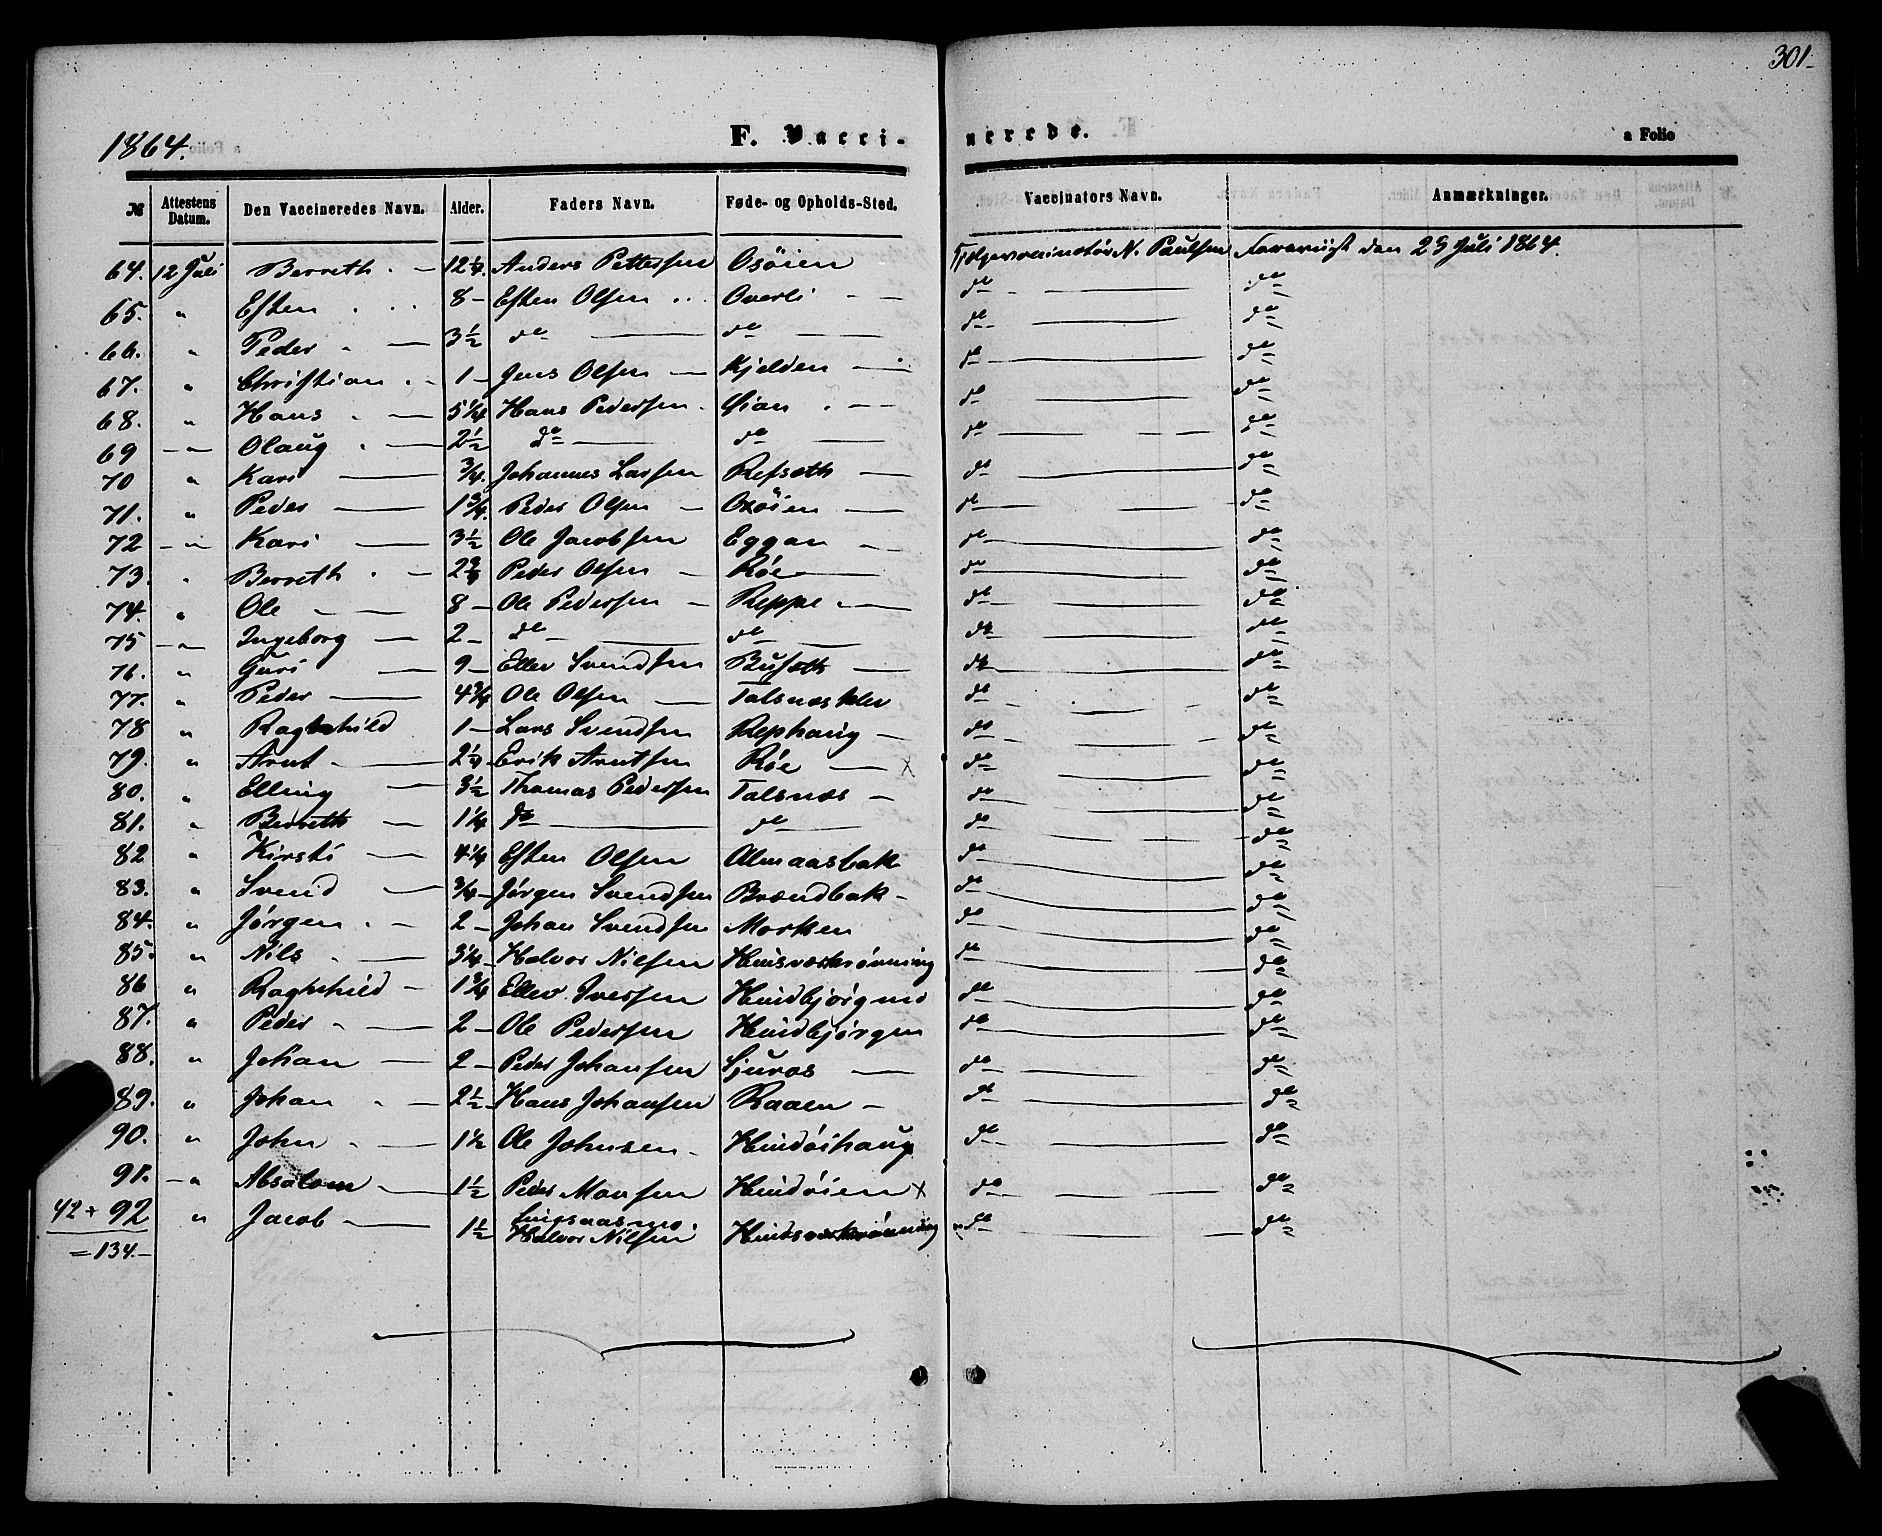 301.
1864. F. Vacci- nerede. a Folio
№ Attestens Datum. Den Vaccineredes Navn. Alder. Faders Navn. Føde- og Opholds-Sted. Vaccinators Navn. Anmærkninger.
64. 12 Juli Berreth. — 12 1/4 Anders Pettersen Osöien N. Paulsen den 23 Juli 1864.
65. " Esten . . 8 — Esten Olsen .. Overli — — do — do
66. " Peder . — 3 1/2 do — do — do — do
67. " Christian . - 1 — Jens Olsen — Kjelden — do — do
68. " Hans . — 5 1/4 Hans Pedersen . Lian . — do — do
69 — " — Olaug . — 2 1/2 do — do — do — do
70 " Kari — 3/4. Johannes Larsen Refseth — do — do
71. " Peder — 1 3/4. Peder Olsen — Osöien — do — do
72 — " — Kari — 3 1/2 Ole Jacobsen Eggan — do — do
73. " Berreth . — 2 3/4 Peder Olsen — Røe — do — do
74. " Ole — — 8 — Ole Pedersen — Reppe . — do — do
75 — " — Ingeborg — 2 — do — do — do — do
76. " Guri — 9 — Ellev Svendsen Buseth — do — do
77. " Peder — 4 3/4 Ole Olsen — Talsnesklev do — do
78 " Raghnhild 1 — Lars Svendsen Rephaug — do — do
79. " Arnt — 2 1/4 Erik Arntsen Røe — x do — do
80. " Elling — 3 1/2 Thomas Pedersen Talsnes — do — do
81. " Berreth — 1 1/4 do — do — do — do
82 " Kirsti — 4 1/4 Esten Olsen Almaasbak do — do
83. " Svend — 3/4 — Jørgen Svendsen Brændbak - do — do
84. " Jørgen . — 2 — Johan Svendsen Morken do — do
85. " Nils . — 3 1/4 Halvor Nilsen do — do
86 " Raghnhild — 1 3/4 Ellev Iversen Hindbjørgmo do — do
87. " Peder . — 2 — Ole Pedersen Hindbjørgen do — do
88. " Johan — 2 — Peder Johansen Sjuras — do — do
89. " Johan . — 2 1/2 — Hans Johansen Raaen — do — do
90. " John . — 1 1/2 Ole Johnsen . Hindöihaug do — do
91. — " Absalom — 1 1/2 Peder Monsen Hindöien x do — do
42 + 92 " Jacob . — 1 1/2 Halvor Nilsen do — do
= 134. —